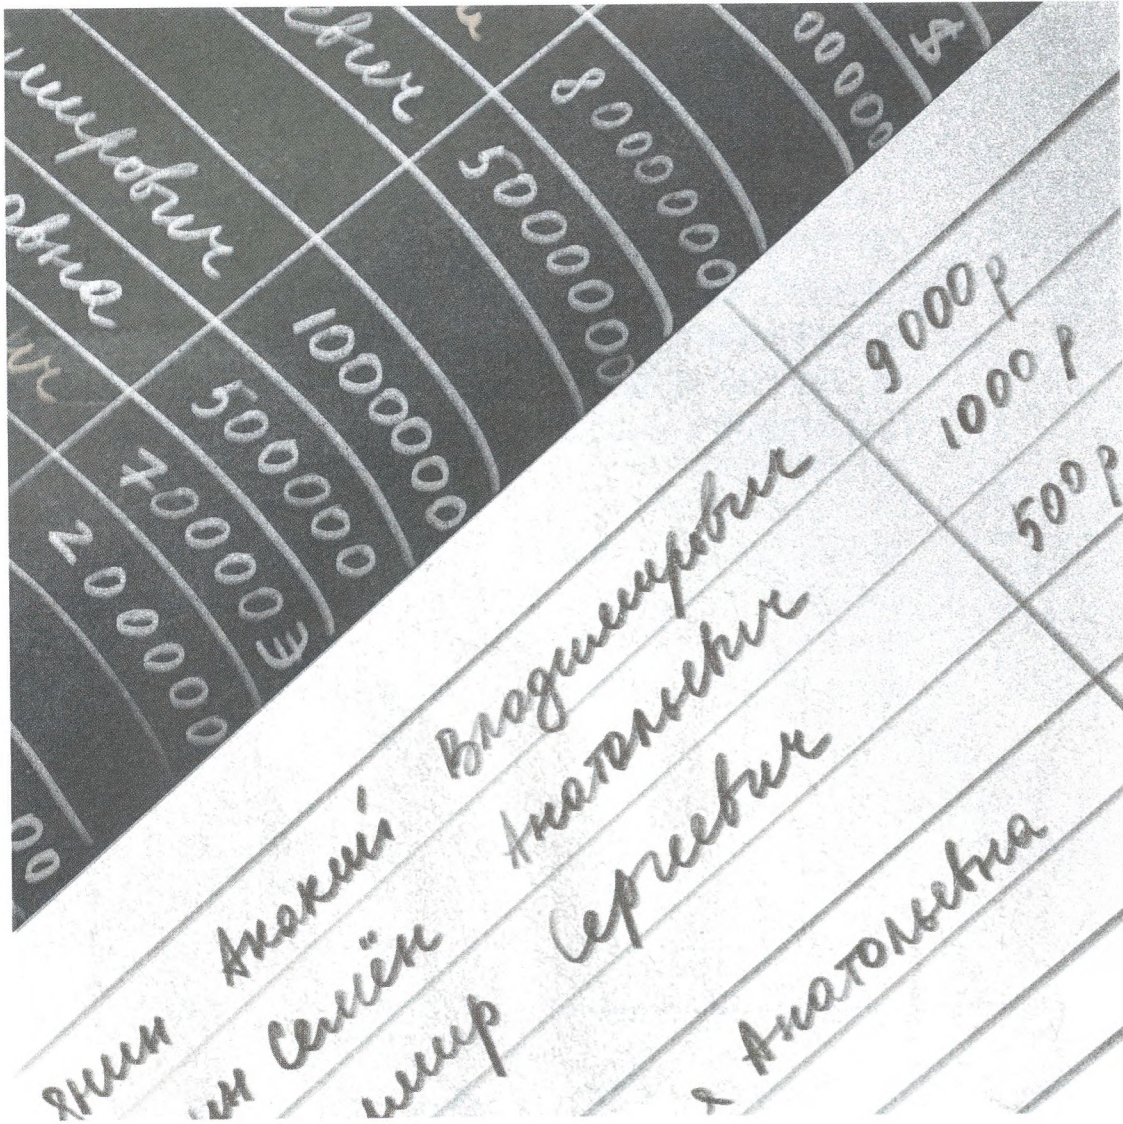 евич
мирович
овна
ич
$
00000
8000000
50000000
1000000
500000
70000€
200000
00
янин Анакий Владимирович 9000р
ин Семён Анатольевич 1000 р
имир Сергеевич 500р
я Анатольевна